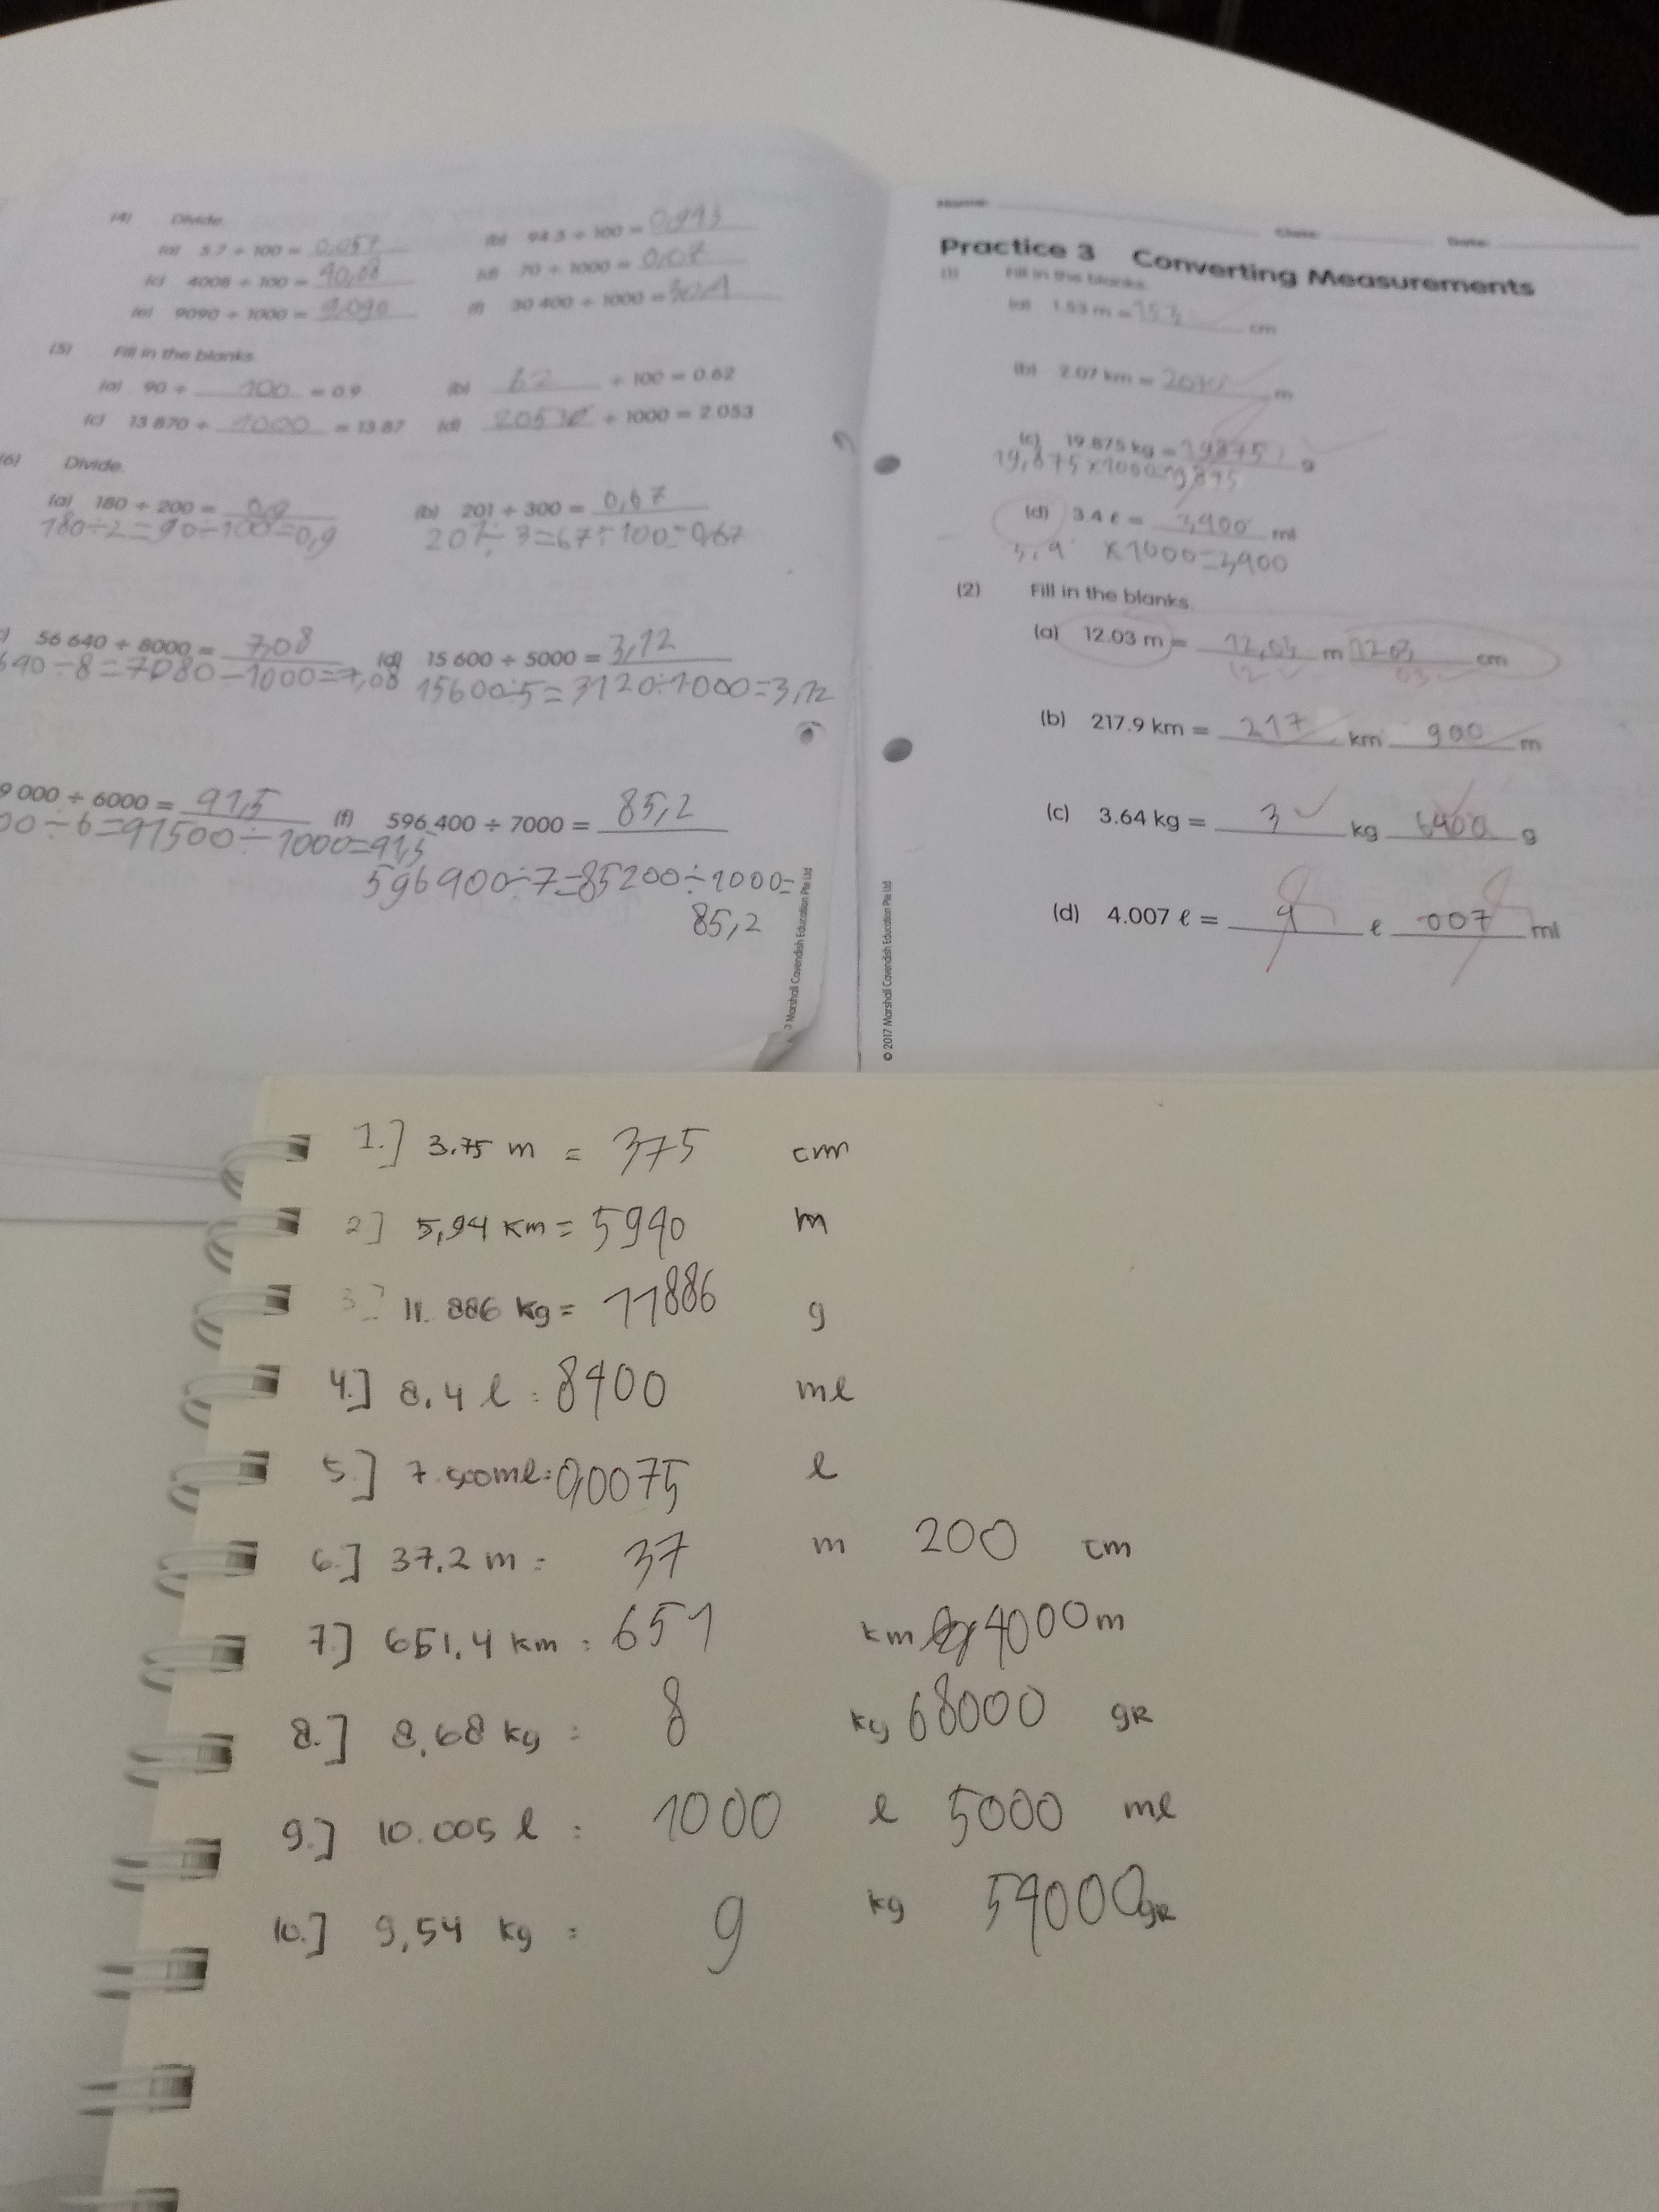 (4) Divide.
(a) 5.7 ÷ 100 = 0,057 (b) 94.3 ÷ 100 = 0,943
(c) 4008 ÷ 100 = 40,08 (d) 70 ÷ 1000 = 0,07
(e) 9090 ÷ 1000 = 9,090 (f) 30 400 ÷ 1000 =
(5) Fill in the blanks.
(a) 90 ÷ 100 = 0.9 (b) 62 ÷ 100 = 0.62
(c) 13 870 ÷ 1000 = 13.87 (d) ÷ 1000 = 2.053
(6) Divide.
(a) 180 ÷ 200 = 0,9 (b) 201 ÷ 300 = 0,67
180÷2=90÷100=0,9 201÷3=67÷100=0,67
56 640 ÷ 8000 = 7,08 (d) 15 600 ÷ 5000 = 3,12
640÷8=7080÷1000=7,08 15600÷5=3120÷1000=3,12
9 000 ÷ 6000 = 91,5 (f) 596 400 ÷ 7000 = 85,2
00÷6=91500÷1000=91,5
596400÷7=85200÷1000=
85,2
Marshall Cavendish Education Pte Ltd
© 2017 Marshall Cavendish Education Pte Ltd
Name: Class: Date:
Practice 3 Converting Measurements
(1) Fill in the blanks.
(a) 1.53 m = 153 cm
(b) 2.07 km = 2070 m
(c) 19.875 kg = 19875 g
19,875×1000=
(d) 3.4 ℓ = 3,400 ml
×1000=3,400
(2) Fill in the blanks.
(a) 12.03 m = 12,03 m 1203 cm
12 03
(b) 217.9 km = 217 km 900 m
(c) 3.64 kg = 3 kg g
(d) 4.007 ℓ = 4 ℓ 007 ml
1.] 3.75 m = 375 cm
2] 5,94 km = 5940 m
3.] 11.886 kg = 11886 g
4.] 8.4 l : 8400 ml
5.] 7.500ml : 0,0075 l
6.] 37.2 m : 37 m 200 cm
7.] 651,4 km : 651 km 4000 m
8.] 8,68 kg : 8 kg 68000 gr
9.] 10.005 l : 1000 l 5000 ml
10.] 9,54 kg : 9 kg 54000 gr